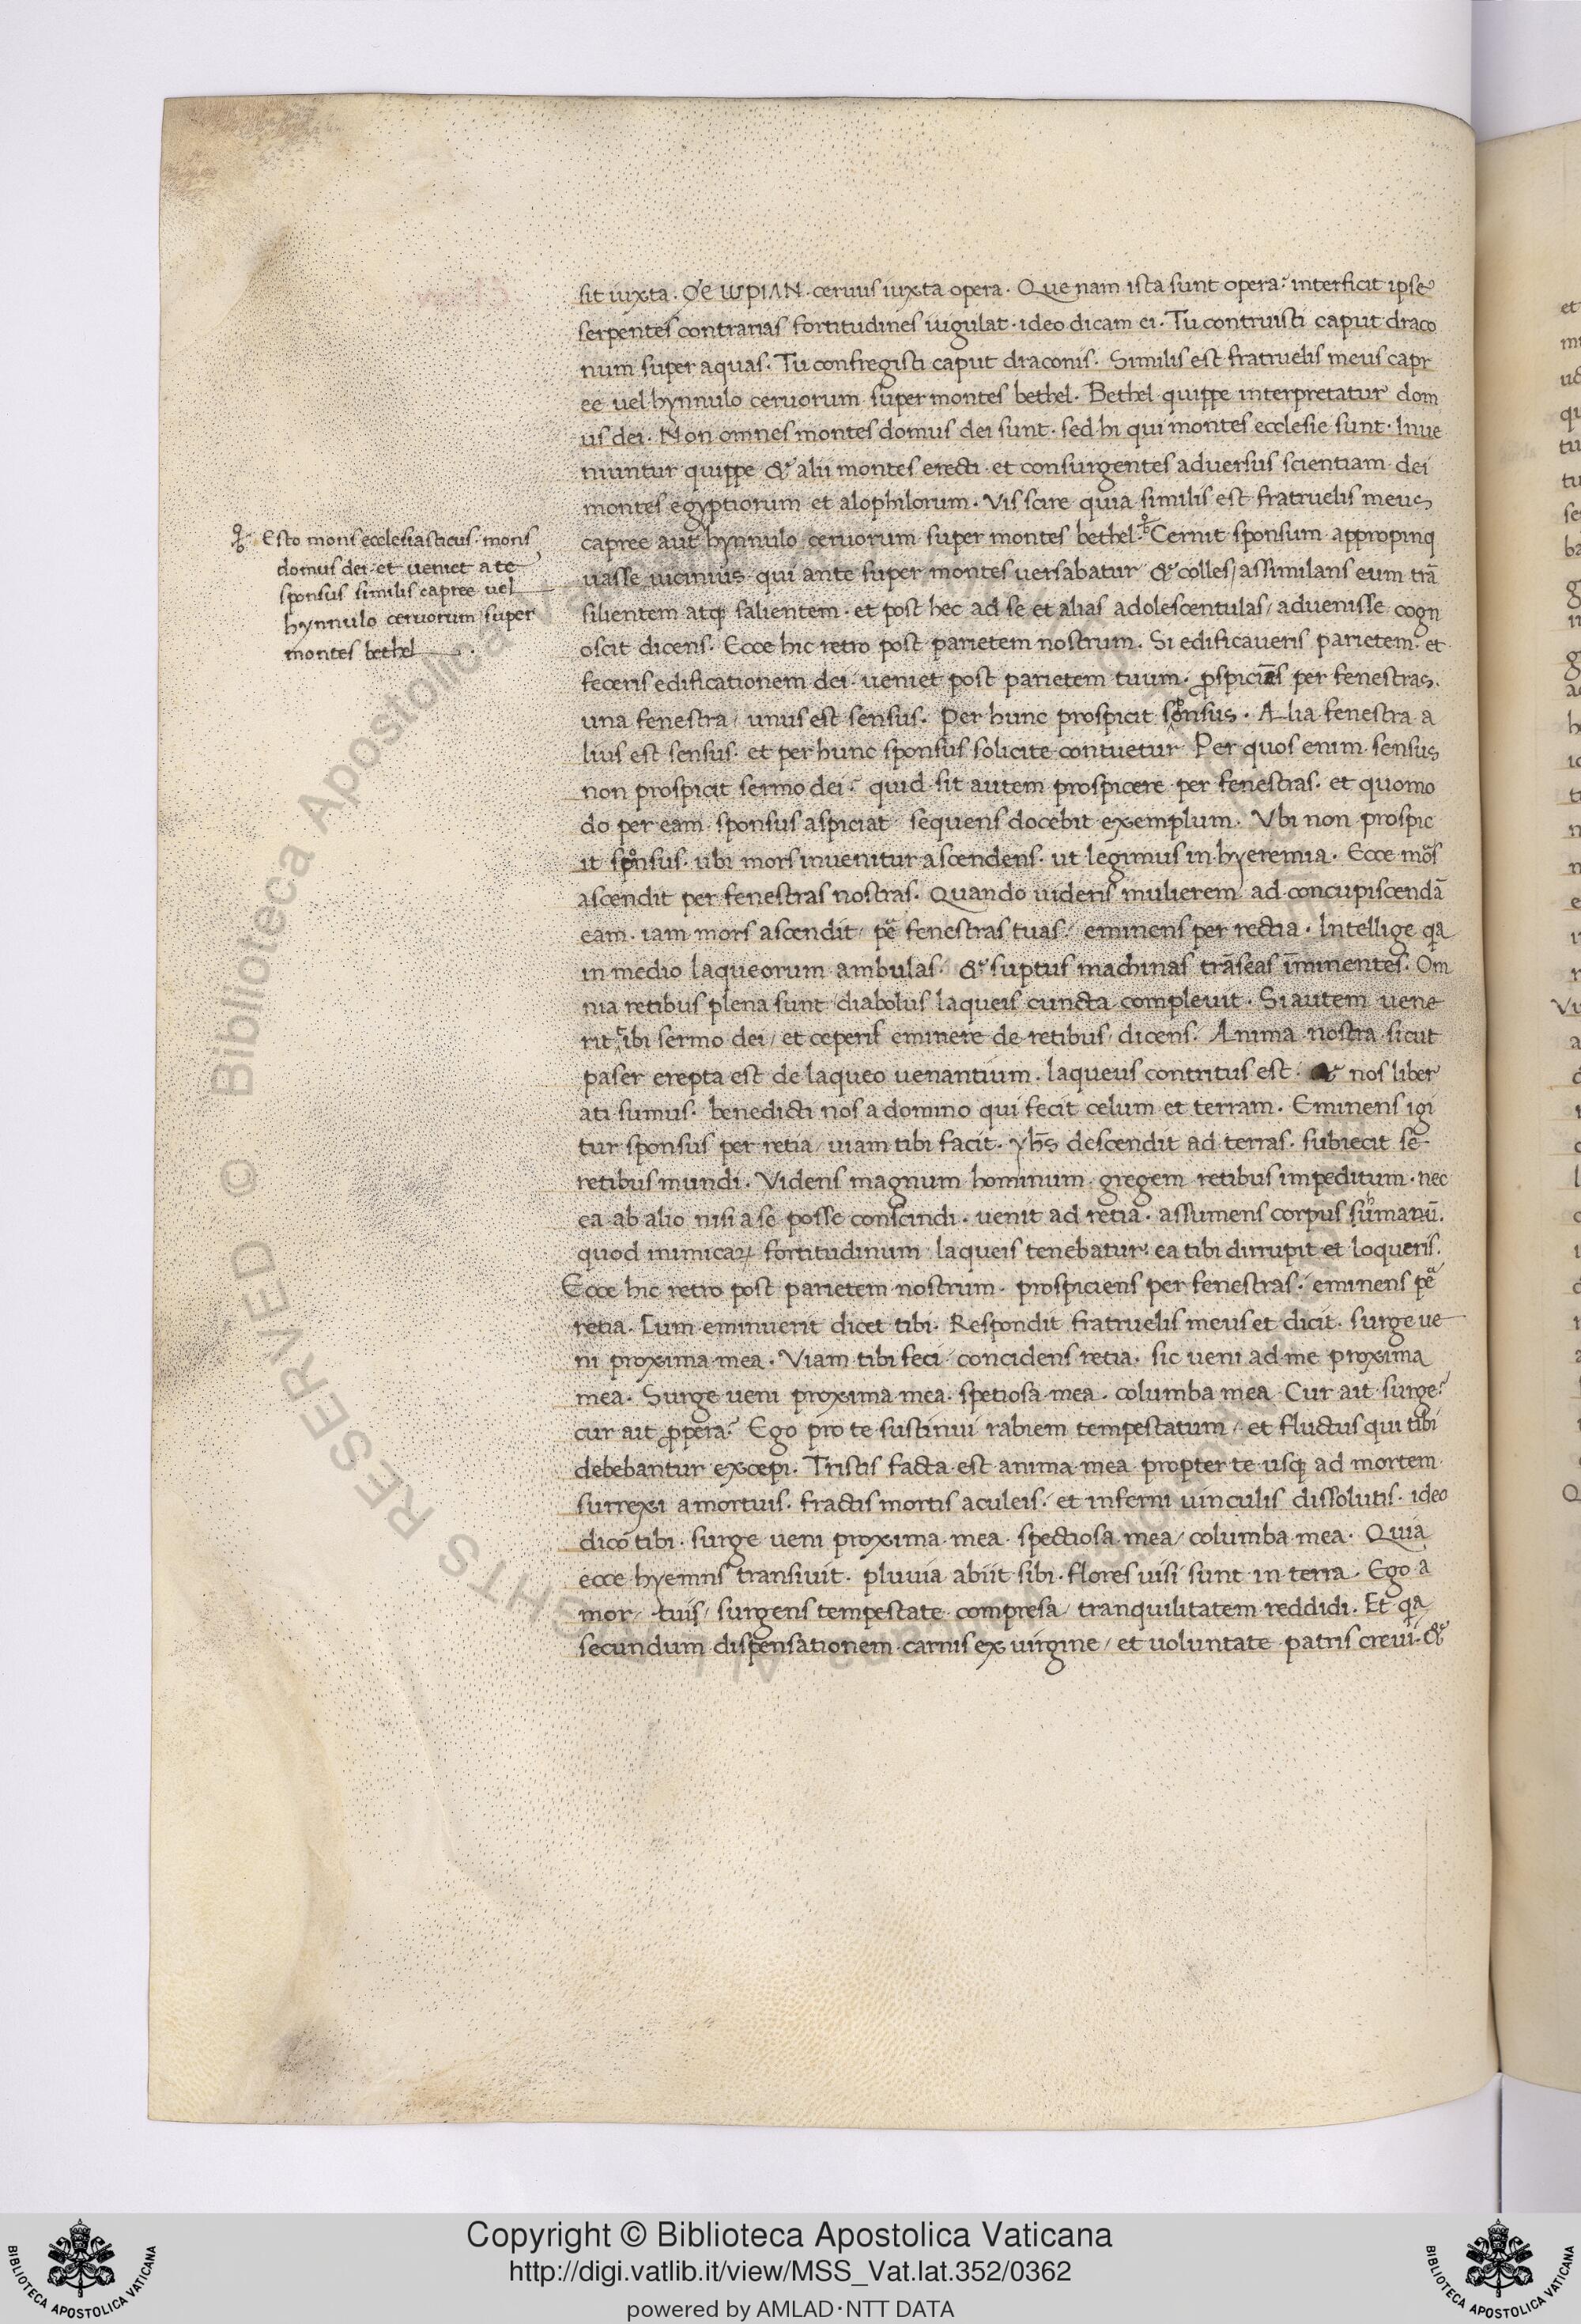 sit iuxta. ΘЄWPIAN. ceruus iuxta opera. Que nam ista sunt opera? interficit ipse
serpentes contrarias fortitudines iugulat. ideo dicam ei. Tu contriuisti caput draco
num super aquas. Tu confregisti caput draconis. Similis est fratruelis meus capr
ee uel hynnulo ceruorum super montes bethel. Bethel quippe interpretatur dom
us dei. Non omnes montes domus dei sunt. sed hi qui montes ecclesie sunt. Inue
niuntur quippe & alii montes erecti et consurgentes aduersus scientiam dei
montes egyptiorum et alophilorum. Vis scire quia similis est fratruelis meus
capree aut hynnulo ceruorum super montes bethel. Cernit sponsum appropinq
uasse uicinius qui ante super montes uersabatur & colles/ assimilans eum trā
silientem atq; salientem. et post hec ad se et alias adolescentulas/ aduenisse cogn
oscit dicens. Ecce hic retro post parietem nostrum. Si edificaueris parietem. et
feceris edificationem dei. ueniet post parietem tuum. ꝓspiciēs per fenestras.
una fenestra/ unus est sensus. Per hunc prospicit sponsus. Alia fenestra a
lius est sensus. et per hunc sponsus solicite contuetur Per quos enim sensus
non prospicit sermo dei? quid sit autem prospicere per fenestras. et quomo
do per eam sponsus aspiciat sequens docebit exemplum. Vbi non prospic
it sponsus. ubi mors inuenitur ascendens. ut legimus in hyeremia. Ecce mors
ascendit per fenestras nostras. Quando uideris mulierem ad concupiscendā
eam. iam mors ascendit/ per fenestras tuas/ eminens per rectia. Intellige qa
in medio laqueorum ambulas. & suptus machinas trāseas īminentes. Om
nia retibus plena sunt/ diabolus laqueis cuncta compleuit. Si autem uene
rit tibi sermo dei/ et ceperis eminere de retibus/ dicens. Anima nostra sicut
paser erepta est de laqueo uenantium. laqueus contritus est. & nos liber
ati sumus. benedicti nos a domino qui fecit celum et terram. Eminens igi
tur sponsus per retia/ uiam tibi facit. yhs̄ descendit ad terras. subiecit se
retibus mundi. Videns magnum hominum gregem retibus impeditum. nec
ea ab alio nisi a se posse conscindi. uenit ad retia. assumens corpus humanū.
quod inimicaꝝ fortitudinum laqueis tenebatur. ea tibi dirrupit et loqueris.
Ecce hic retro post parietem nostrum. prospiciens per fenestras. eminens per
retia. Cum eminuerit dicet tibi. Respondit fratruelis meus et dicit. surge ue
ni proxima mea. Viam tibi feci/ concidens retia. sic ueni ad me proxima
mea. Surge ueni proxima mea. spetiosa mea. columba mea Cur ait surge?
cur ait ꝓpera? Ego pro te sustinui rabiem tempestatum/ et fluctus qui tibi
debebantur excepi. Tristis facta est anima mea propter te usq; ad mortem
surrexi a mortuis. fractis mortis aculeis. et inferni uinculis dissolutis. ideo
dico tibi. surge ueni proxima mea. spectiosa mea/ columba mea. Quia
ecce hyemns transiuit. pluuia abiit sibi. flores uisi sunt in terra. Ego a
mor/ tuis/ surgens tempestate compresa/ tranquilitatem reddidi. Et qa
secundum dispensationem carnis ex uirgine/ et uoluntate patris creui. &
Esto mons ecclesiasticus. mons
domus dei. et ueniet a te
sponsus similis capree uel
hynnulo ceruorum/ super
montes bethel
Copyright © Biblioteca Apostolica Vaticana
http://digi.vatlib.it/view/MSS_Vat.lat.352/0362
powered by AMLAD·NTT DATA